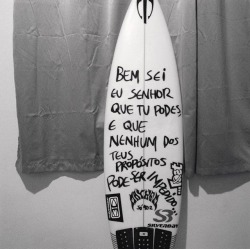 BEM SEI
EU SENHOR
QUE TU PODES
E QUE
NENHUM DOS
TEUS
PROPÓSITOS
PODE SER IMPEDIDO